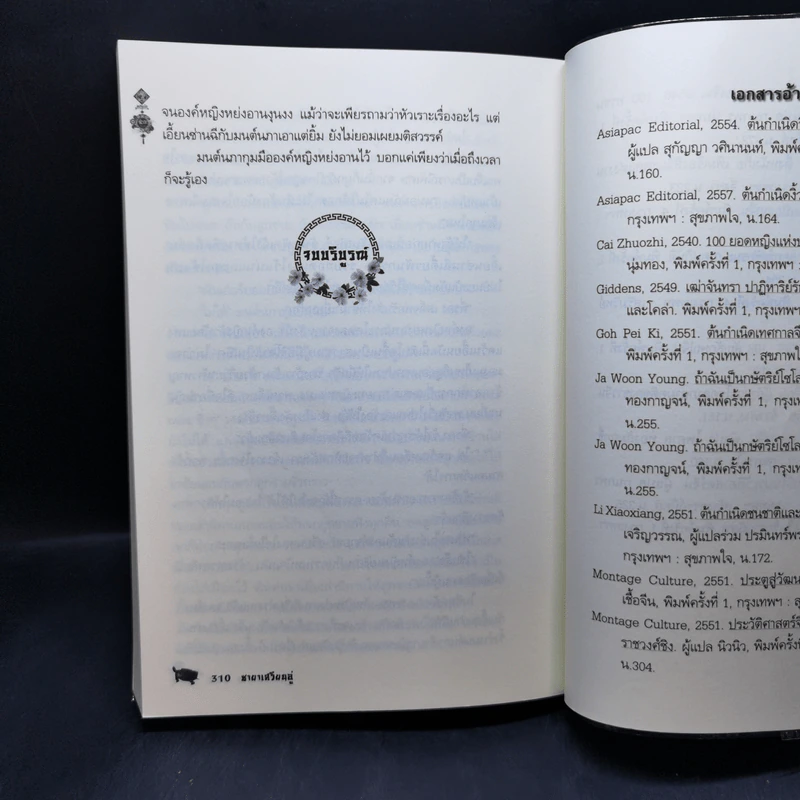 จนองค์หญิงหย่งอานงุนงง แม้ว่าจะเพียรถามว่าหัวเราะเรื่องอะไร แต่
เอี้ยนซ่านฉีกับมนต์นภาเอาแต่ยิ้ม ยังไม่ยอมเผยมติสวรรค์
มนต์นภากุมมือองค์หญิงหย่งอานไว้ บอกแค่เพียงว่าเมื่อถึงเวลา
ก็จะรู้เอง
จบบริบูรณ์
310 ชายาเสวียนอู่
เอกสารอ้า
Asiapac Editorial, 2554. ต้นกำเนิด
ผู้แปล สุกัญญา วศินานนท์, พิมพ์ค
น.160.
Asiapac Editorial, 2557. ต้นกำเนิดงิ้ว
กรุงเทพฯ : สุขภาพใจ, น.164.
Cai Zhuozhi, 2540. 100 ยอดหญิงแห่ง
นุ่มทอง, พิมพ์ครั้งที่ 1, กรุงเทพฯ :
Giddens, 2549. เฒ่าจันทรา ปาฏิหาริย์รั
และโคล่า. พิมพ์ครั้งที่ 1, กรุงเทพฯ
Goh Pei Ki, 2551. ต้นกำเนิดเทศกาลจี
พิมพ์ครั้งที่ 1, กรุงเทพฯ : สุขภาพใ
Ja Woon Young. ถ้าฉันเป็นกษัตริย์โซโล
ทองกาญจน์, พิมพ์ครั้งที่ 1, กรุงเท
น.255.
Ja Woon Young. ถ้าฉันเป็นกษัตริย์โซโล
ทองกาญจน์, พิมพ์ครั้งที่ 1, กรุงเท
น.255.
Li Xiaoxiang, 2551. ต้นกำเนิดชนชาติและ
เจริญวรรณ, ผู้แปลร่วม ปรมินทร์พร
กรุงเทพฯ : สุขภาพใจ, น.172.
Montage Culture, 2551. ประตูสู่วัฒน
เชื้อจีน, พิมพ์ครั้งที่ 1, กรุงเทพฯ : สุ
Montage Culture, 2551. ประวัติศาสตร์จี
ราชวงศ์ชิง. ผู้แปล นิวนิว, พิมพ์ครั้งที
น.304.